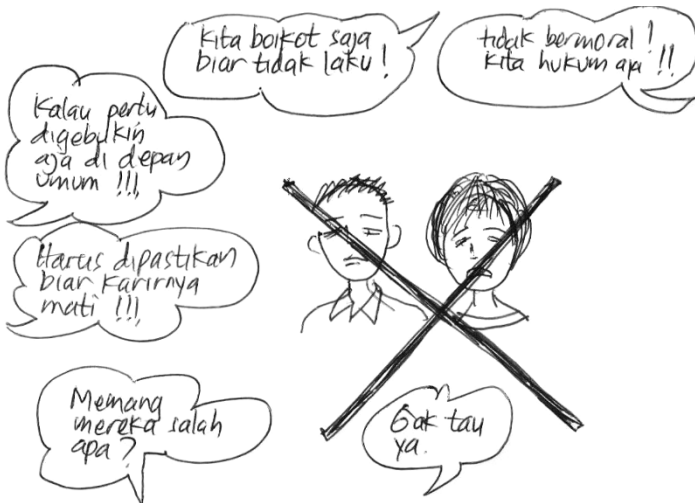 kita boikot saja
biar tidak laku !
tidak bermoral !
kita hukum aja !!
Kalau perlu
digebukin
aja di depan
umum !!!
Harus dipastikan
biar karirnya
mati !!!
Memang
mereka salah
apa ?
Gak tau
ya.